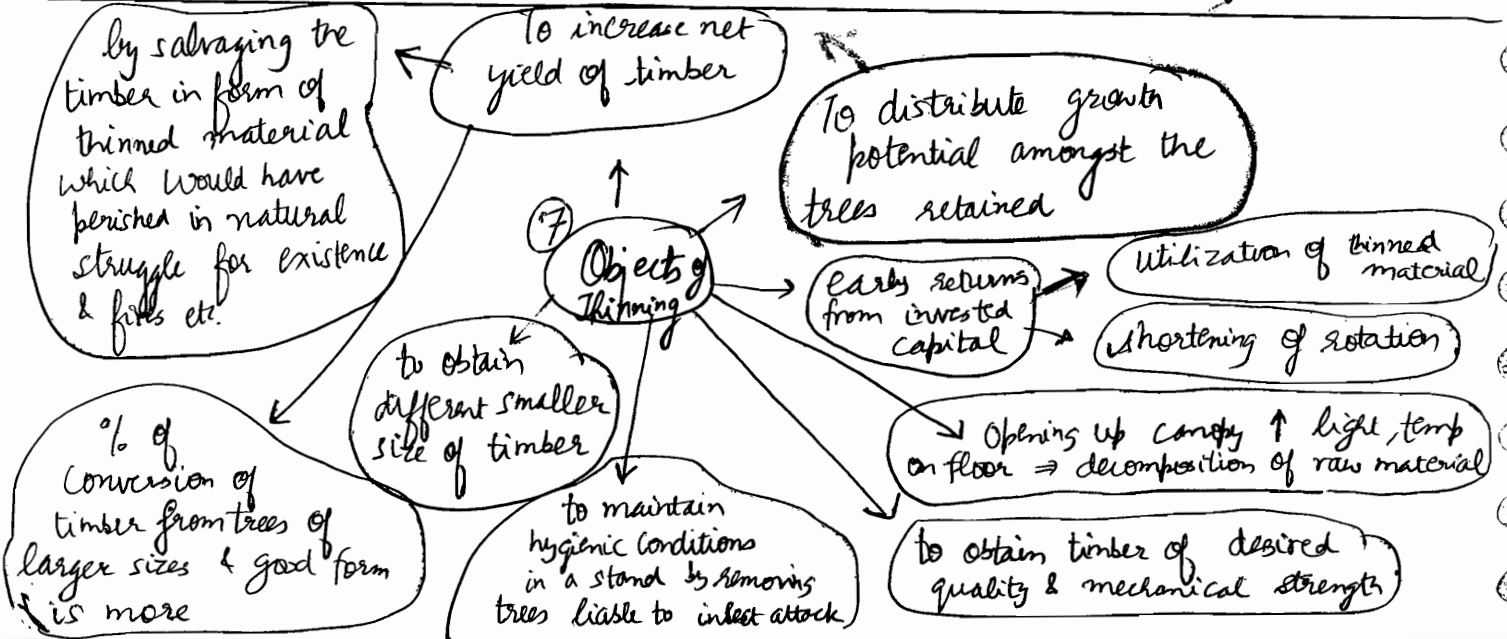 by salvaging the
timber in form of
thinned material
which would have
perished in natural
struggle for existence
& fires etc.
To increase net
yield of timber
To distribute growth
potential amongst the
trees retained
7
Objects of
Thinning
early returns
from invested
capital
Utilization of thinned
material
shortening of rotation
to obtain
different smaller
size of timber
Opening up canopy ↑ light, temp
on floor ⇒ decomposition of raw material
% of
conversion of
timber from trees of
larger sizes & good form
is more
to maintain
hygienic conditions
in a stand by removing
trees liable to insect attack
to obtain timber of desired
quality & mechanical strength